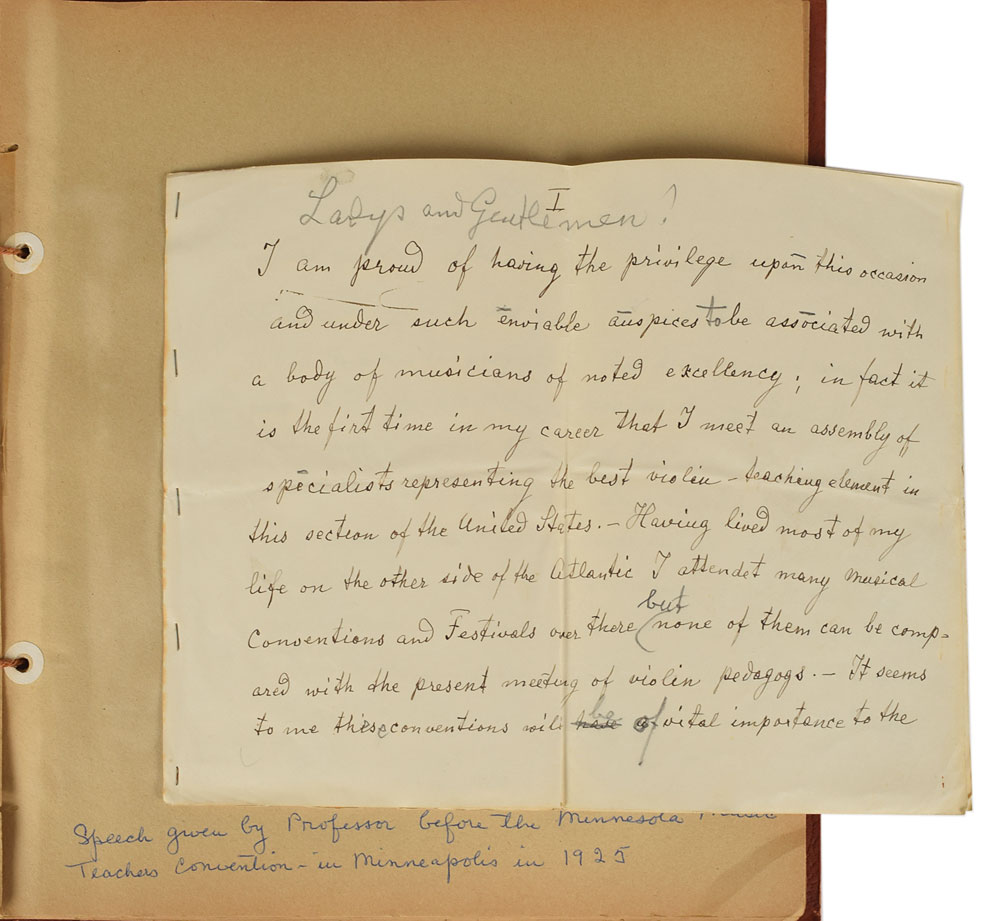 I
Ladys and Gentlemen!
I am proud of having the privilege upon this occasion
and under such enviable auspices to be associated with
a body of musicians of noted excellency; in fact it
is the first time in my career that I meet an assembly of
specialists representing the best violin - teaching element in
this section of the United States. - Having lived most of my
life on the other side of the Atlantic I attendet many musical
but
Conventions and Festivals over there none of them can be comp-
ared with the present meeting of violin pedagogs. - It seems
be of
to me these conventions will have a vital importance to the
Speech given by Professor before the Minnesota Music
Teachers Convention - in Minneapolis in 1925